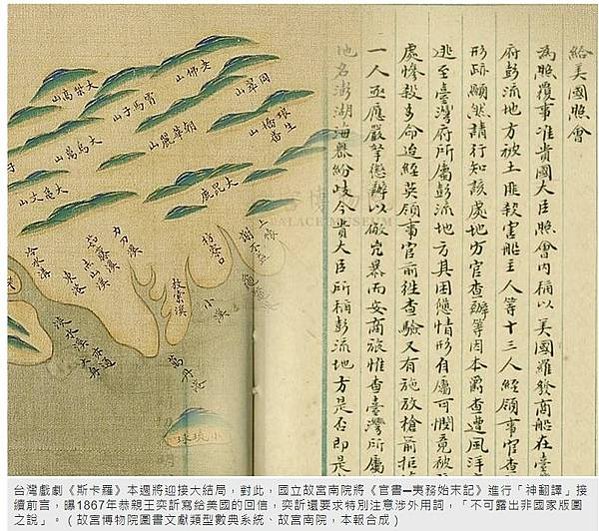 給美國照會
為照覆事准貴國大臣照會內稱以美國羅發商船在臺
府彭流地方被土匪殺害船主人等十三人經領事官查
形跡顯然請行知該處地方官查辦等因本爵查遭風浮
逃至臺灣府所屬彭流地方其困隱情形有屬可憫竟被
處慘殺多命迨經英領事官前往查驗又有施放槍箭拒
一人亟應嚴拏懲辦以儆兇暴而安商旅惟查臺灣所屬
地名澎湖海嶴紛歧今貴大臣所稱彭流地方是否即是
老佛山
大烏萬山
大龜文山
大昆鹿
冷水溝
東港
茄藤溪
力力溪
枋寮口
淡水溪
小溪
小琉球
台灣戲劇《斯卡羅》本週將迎接大結局，對此，國立故宮南院將《官書─夷務始末記》進行「神翻譯」接
續前言，曝1867年恭親王奕訢寫給美國的回信，奕訢還要求特別注意涉外用詞，「不可露出非國家版圖
之說」。（故宮博物院圖書文獻類型數典系統、故宮南院，本報合成）